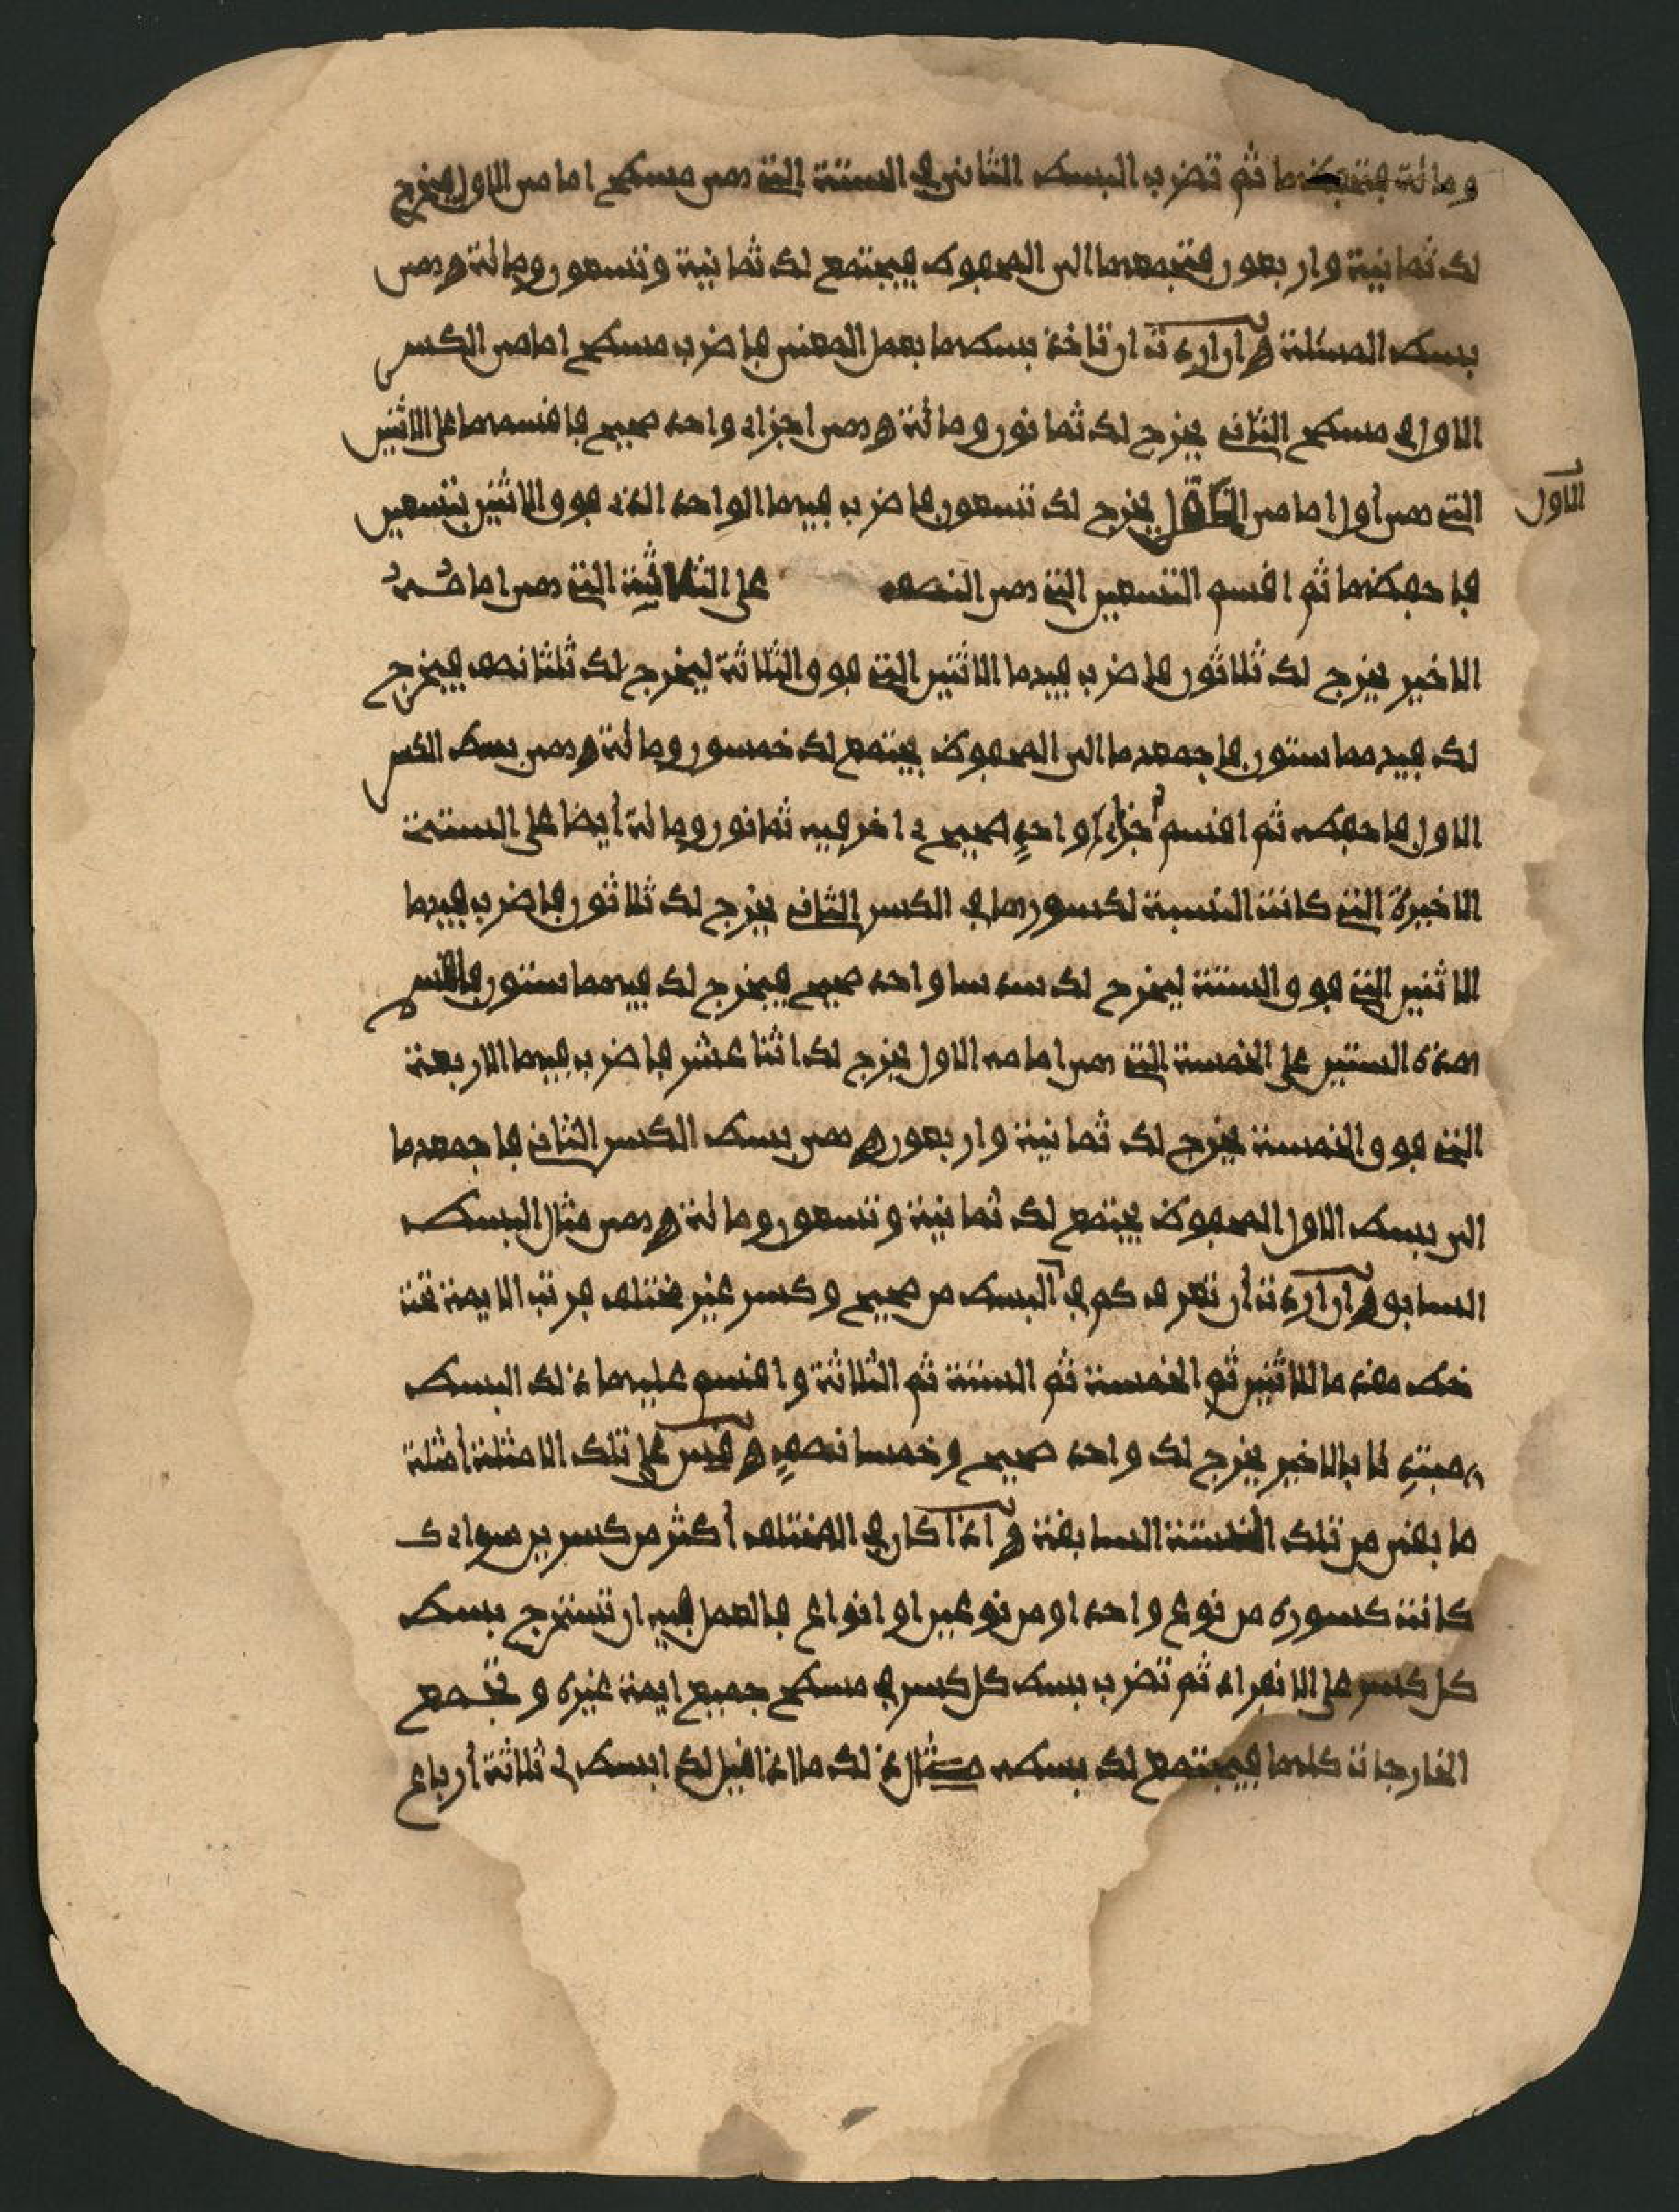 ومائة فتحفظها ثم تضرب البسط الثاني في الستة التي هي مسطح امامي الاول يخرج
لك ثمانية واربعون فتجمعها الى المحفوظ فيجتمع لك ثمانية وتسعون ومائة وهي
بسط المسئلة وان اردت ان تاخذ بسطها بعمل المعنى فاضرب مسطح امامي الكسر
الاول في مسطح الثاني يخرج لك ثمانون ومائة وهي اجزاء واحد صحيح فاقسمها على الاثنين
الاول
التي هي أول امامي يخرج لك تسعون فاضرب فيها الواحد الذي فوق الاثنين بتسعين
فاحفظها ثم اقسم التسعين التي هي النصف على الثلاثة التي هي امام
الاخير يخرج لك ثلاثون فاضرب فيها الاثنين التي فوق الثلاثة ليخرج لك ثلثا نصف فيخرج
لك فيهما ستون فاجمعها الى المحفوظ يجتمع لك خمسون ومائة وهي بسط الكسر
الاول فاحفظه ثم اقسم اجزاء واحد صحيح اخر فيه ثمانون ومائة أيضا على الستة
الاخيرة التي كانت النسبة لكسورها في الكسر الثاني يخرج لك ثلاثون فاضرب فيها
الاثنين التي فوق الستة ليخرج لك سدسا واحد صحيح فيخرج لك فيهما ستون فاقسم
هذه الستين على الخمسة التي هي امامه الاول يخرج لك اثنا عشر فاضرب فيها الاربعة
التي فوق الخمسة يخرج لك ثمانية واربعون وهي بسط الكسر الثاني فاجمعها
الى بسط الاول المحفوظ يجتمع لك ثمانية وتسعون ومائة وهي مثال البسط
السابق وان اردت أن تعرف كم في البسط من صحيح وكسر غير مختلف فرتب الايمة تحت
خط مقدما الاثنين ثم الخمسة ثم الستة ثم الثلاثة واقسم عليها ذلك البسط
بالاخير يخرج لك واحد صحيح وخمسا نصف وقس على تلك الامثلة أمثلة
ما بقي من تلك الستة السابقة واذا كان في المختلف أكثر من كسرين سواء
كانت كسوره من نوع واحد او من نوعين او انواع فالعمل فيه ان تستخرج بسط
كل كسر على الانفراد ثم تضرب بسط كل كسر في مسطح جميع ايمة غيره وتجمع
الخارجات كلها فيجتمع لك بسطه مثال ذلك ما اذا قيل لك ابسط لي ثلاثة أرباع